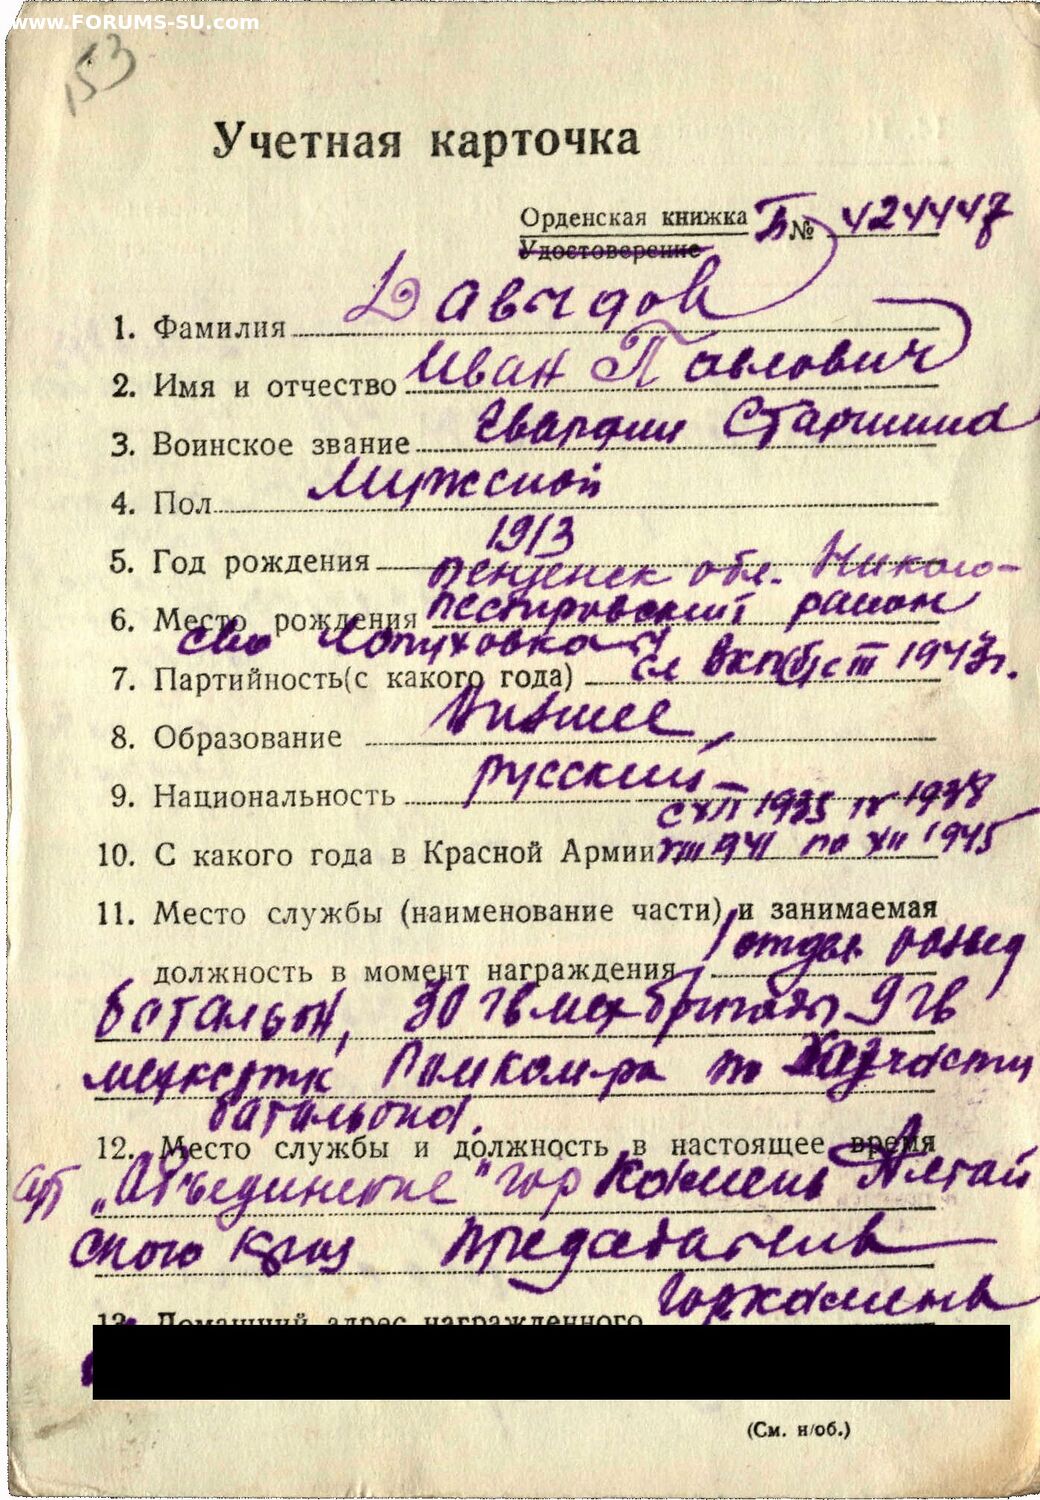 www.FORUMS-SU.com
153
Учетная карточка
Орденская книжка Б № 424447
Удостоверение
1. Фамилия Давыдов
2. Имя и отчество Иван Павлович
3. Воинское звание Гвардии Старшина
4. Пол Мужской
5. Год рождения 1913
Пензенск обл. Николо-
6. Место рождения пестровский район
село
7. Партийность (с какого года) 1943г.
8. Образование Низшее,
9. Национальность русский
с XII 1935 IV 1938
10. С какого года в Красной Армии VIII 941 по XII 1945
11. Место службы (наименование части) и занимаемая
должность в момент награждения отдел. развед
батальон, 30 гв мех бригады 9 гв
мехкорпус Помком-ра по хозчасти
батальона.
12. Место службы и должность в настоящее время
"Объединение" гор Камень Алтай
ского края Председатель
13. Домашний адрес награжденного Горкамень
(См. н/об.)